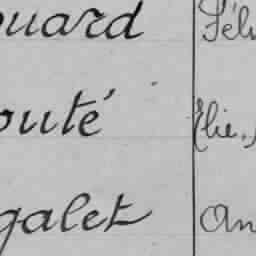 ouard Féli
outé Elie.
galet An